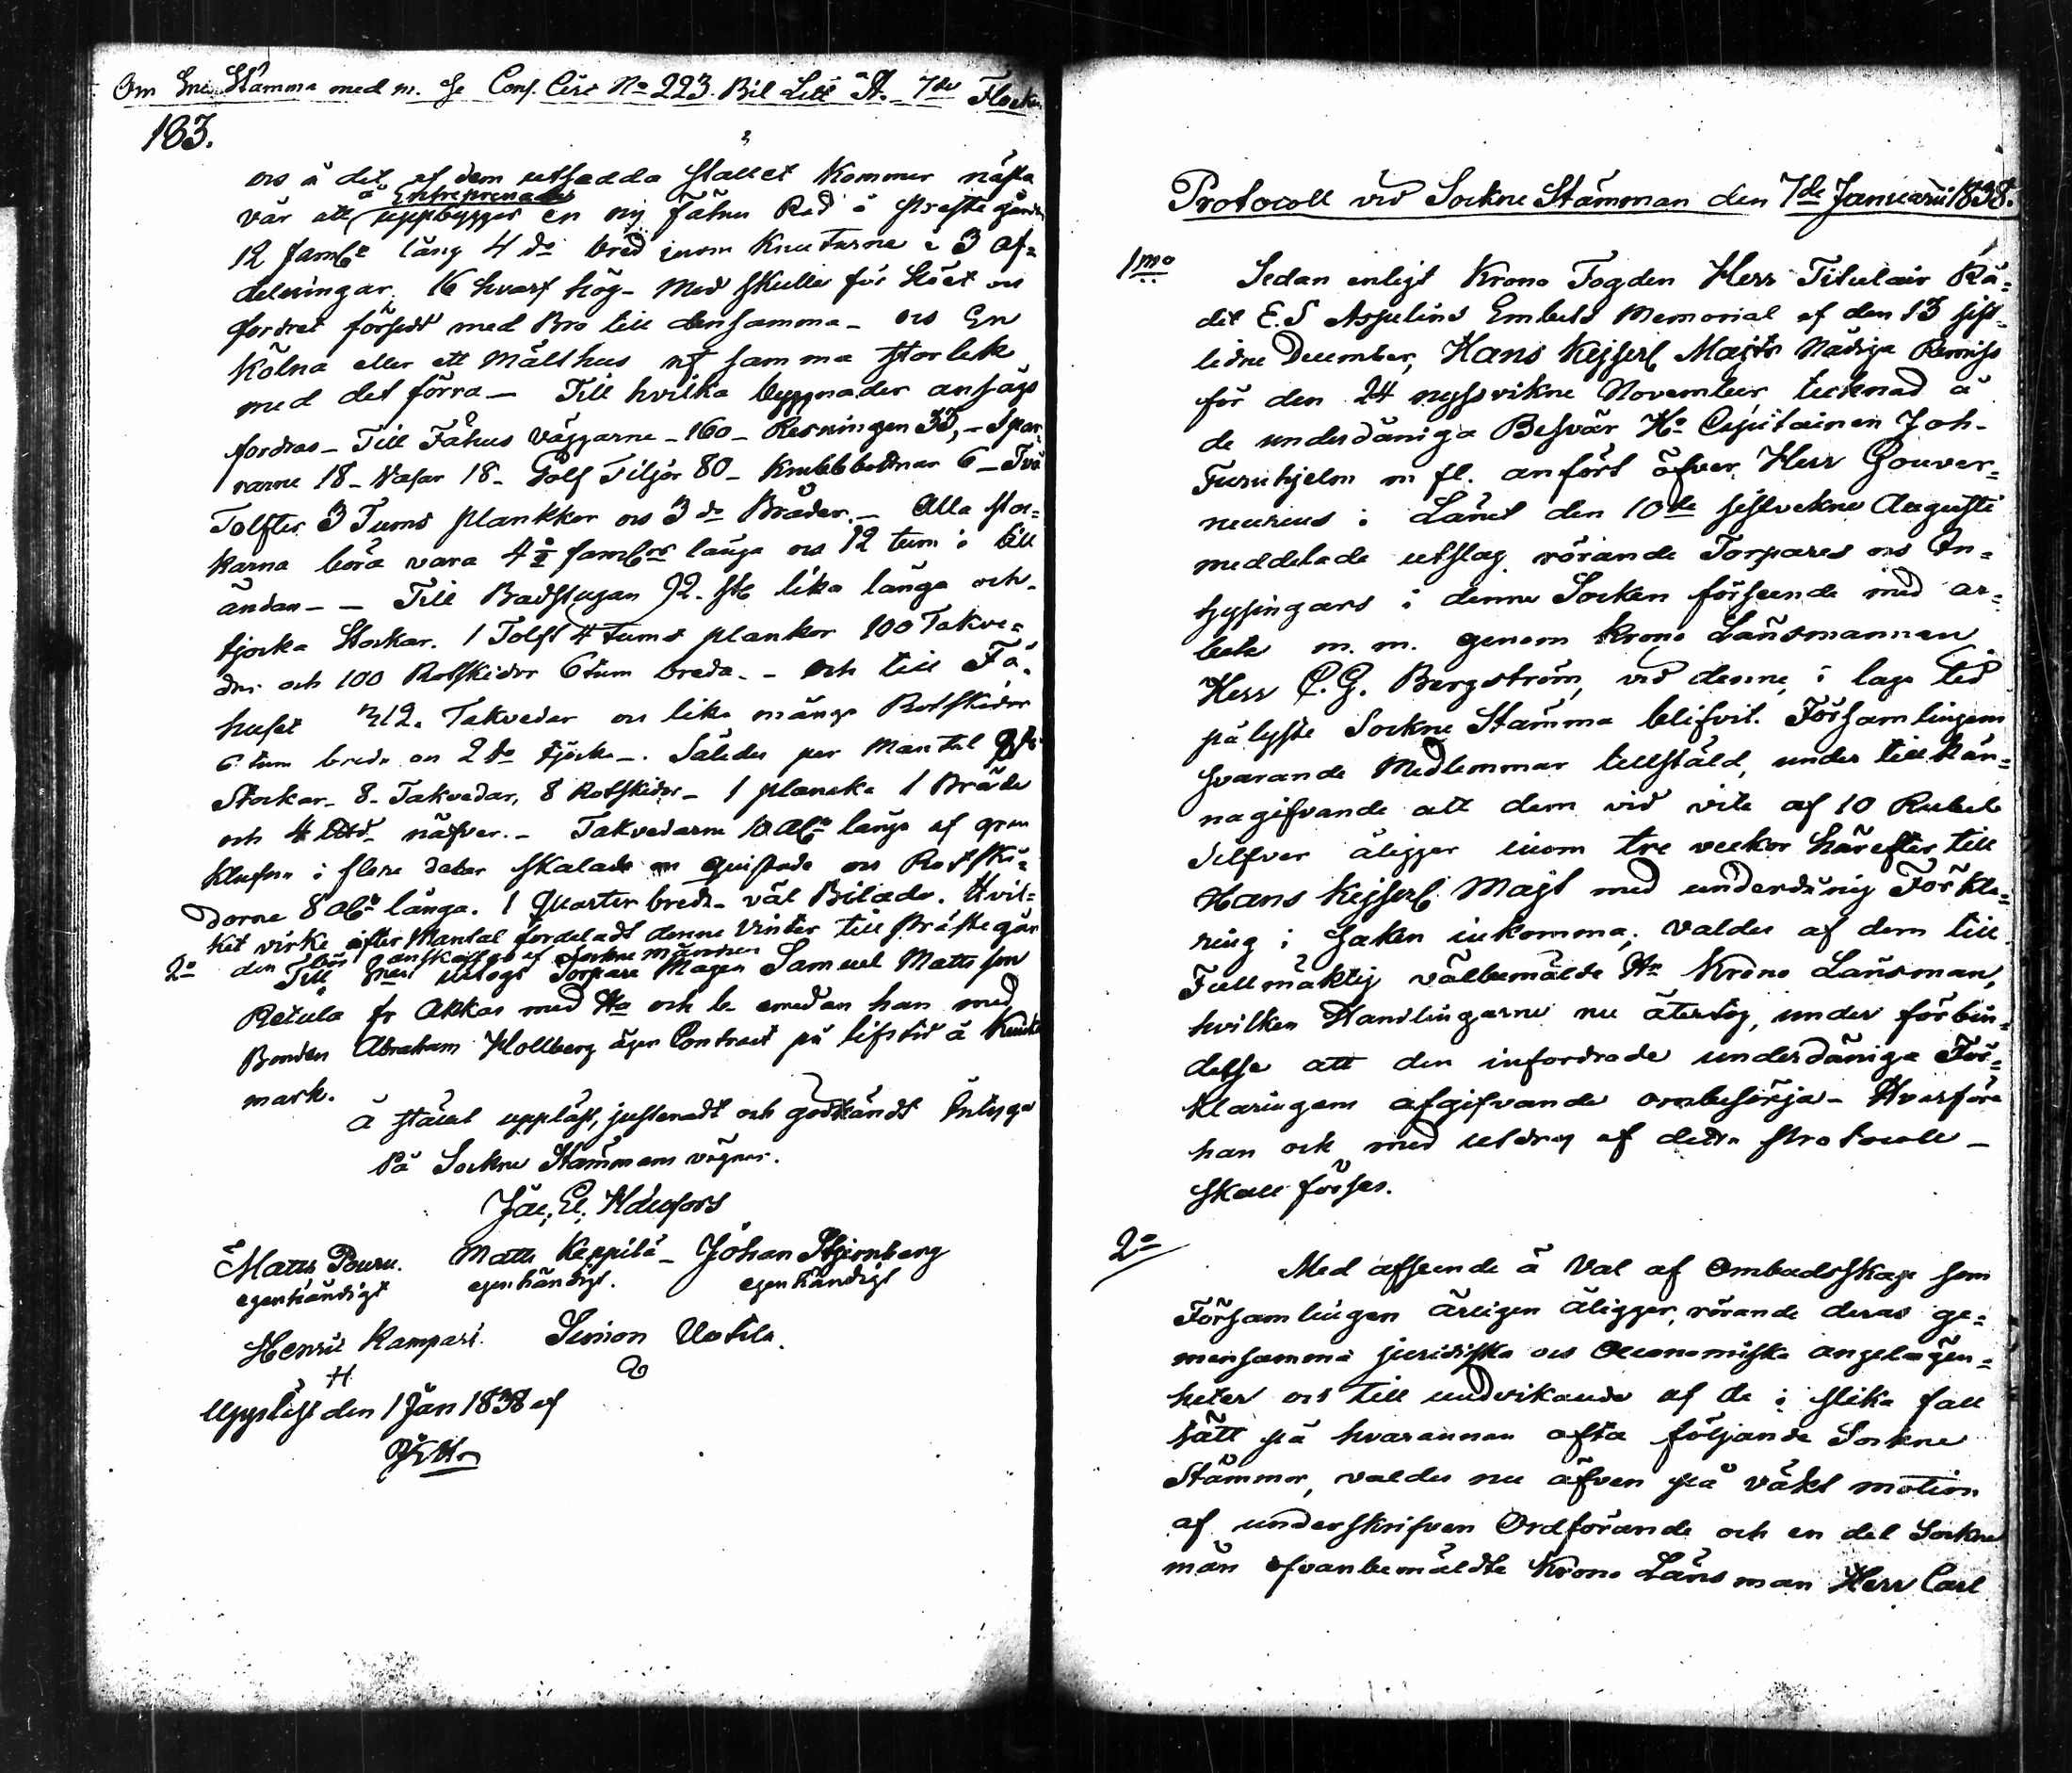 Om Sne Stämma med m. se Cons. Circ No 223 Bil Litt A. 7de Flocken
183.
os å det af dem utsedda stället kommer nästa
vår att å Entreprenade uppbygges en ny Fähus Rad å prestegården
12 famlr lång 4 do bred inom knutarne i 3 af-
delningar, 16 hvarf hög - med skulle för Höet os
fodret försedt med Bro till densamma - os En
Kölna eller ett Mälthus af samma storlek
med det förra - Till hvilka byggnader ansågs
fordras - Till Fähus väggarne - 160 - Resningen 33, - Spar-
rarne 18 - Vasar 18 - Golf Tiljor 80 - Knubbbottnar 6 - Två
Tolfter 3 Tums plankkor os 3 do Bräder. - Alla stoc-
karna böra vara 4½ famlar långa os 12 tum i lill
ändan - - Till Badstugan 92. st lika långa och
tjocka Stockar. 1 Tolft 4 tums plankor 100 Takve-
der och 100 Rotskidor 6 tum breda. - och till Fä-
huset 312. Takvedar os lika många Rotskidor
6 tum breda os 2 do tjocka -. Således per Mantal
Stockar - 8 - Takvedar, 8 Rotskidor - 1 plancka 1 Bräde
och 4 näfver. - Takvedarne 10 Alr långa af gran
klufna i flere delar skalade os quistade os Rotski-
dorne 8 alr långa. 1 Quarter breda väl Bilade. Hvil-
ket virke efter Mantal fördeladt denne Vinter till Prästegår
den bör anskaffas af Sockne männen
2o Till uttogs Torpare Magen Samuel Matts son
Retula fr Akkas med Ha och b. emedan han med
Bonden Abraham Hollberg äger Contract på lifstid å
mark.
Å stäld uppläst, justeradt och godkändt Intyga
På Sockne Stämmans vägnar.
Matts Pouru. Matts Keppilä - Johan Stjernberg
egenhändigt egenhändigt. egenhändigt
Henric Rampari. Simon Uotila.
Uppläst den 1 Jan 1838 af
Protocoll vid Sockne Stämman den 7de Januarii 1838.
1mo Sedan enligt Krono Fogden Herr Titulair Rå-
det E. S Asselins Embets Memorial af den 13 sist-
lidne December, Hans Kejserl Majts Nådiga Remiss
för den 24 nyssvikne November tecknad å
de underdåniga Besvär Hr Capitainen Joh-
Furuhjelm m fl. anfört öfver Herr Gouver-
neurens i Länet den 10de sistvekne Augusti
meddelade utslag rörande Torpares os In-
hysingars i denne Socken förseende med ar-
bete m. m. genom Krono Länsmannen
Herr C. G. Bergström, vid denne, i laga tid
pålyste Sockne Stämma blifvit Församlingens
svarande Medlemmar tillstäld, under tillkän-
nagifvande att dem vid vite af 10 Rubel
Silfver åligger inom tre veckor härefter till
Hans Kejserl. Majt med underdånig Förkla-
ring i saken inkomma; valdes af dem till
Fullmäktig välbemälde Hr Krono Länsman,
hvilken Handlingarne nu återtog, under förbin-
delse att den infordrade underdåniga För-
klaringens afgifvande ombesörja - Hvarföre
han ock med utdrag af detta protocoll -
skall förses.
2o Med afseende å Val af Ombudsskap som
Församlingen årligen åligger, rörande deras ge-
mensamma juridiska os Oeconomiska angelägen-
heter os till undvikande af de i slika fall
tätt på hvarannan ofta följande Sockne
Stämmor, valdes nu äfven på väkt motion
af underskrifven Ordförande och en del Sockne
män ofvanbemäldte Krono Länsman Herr Carl